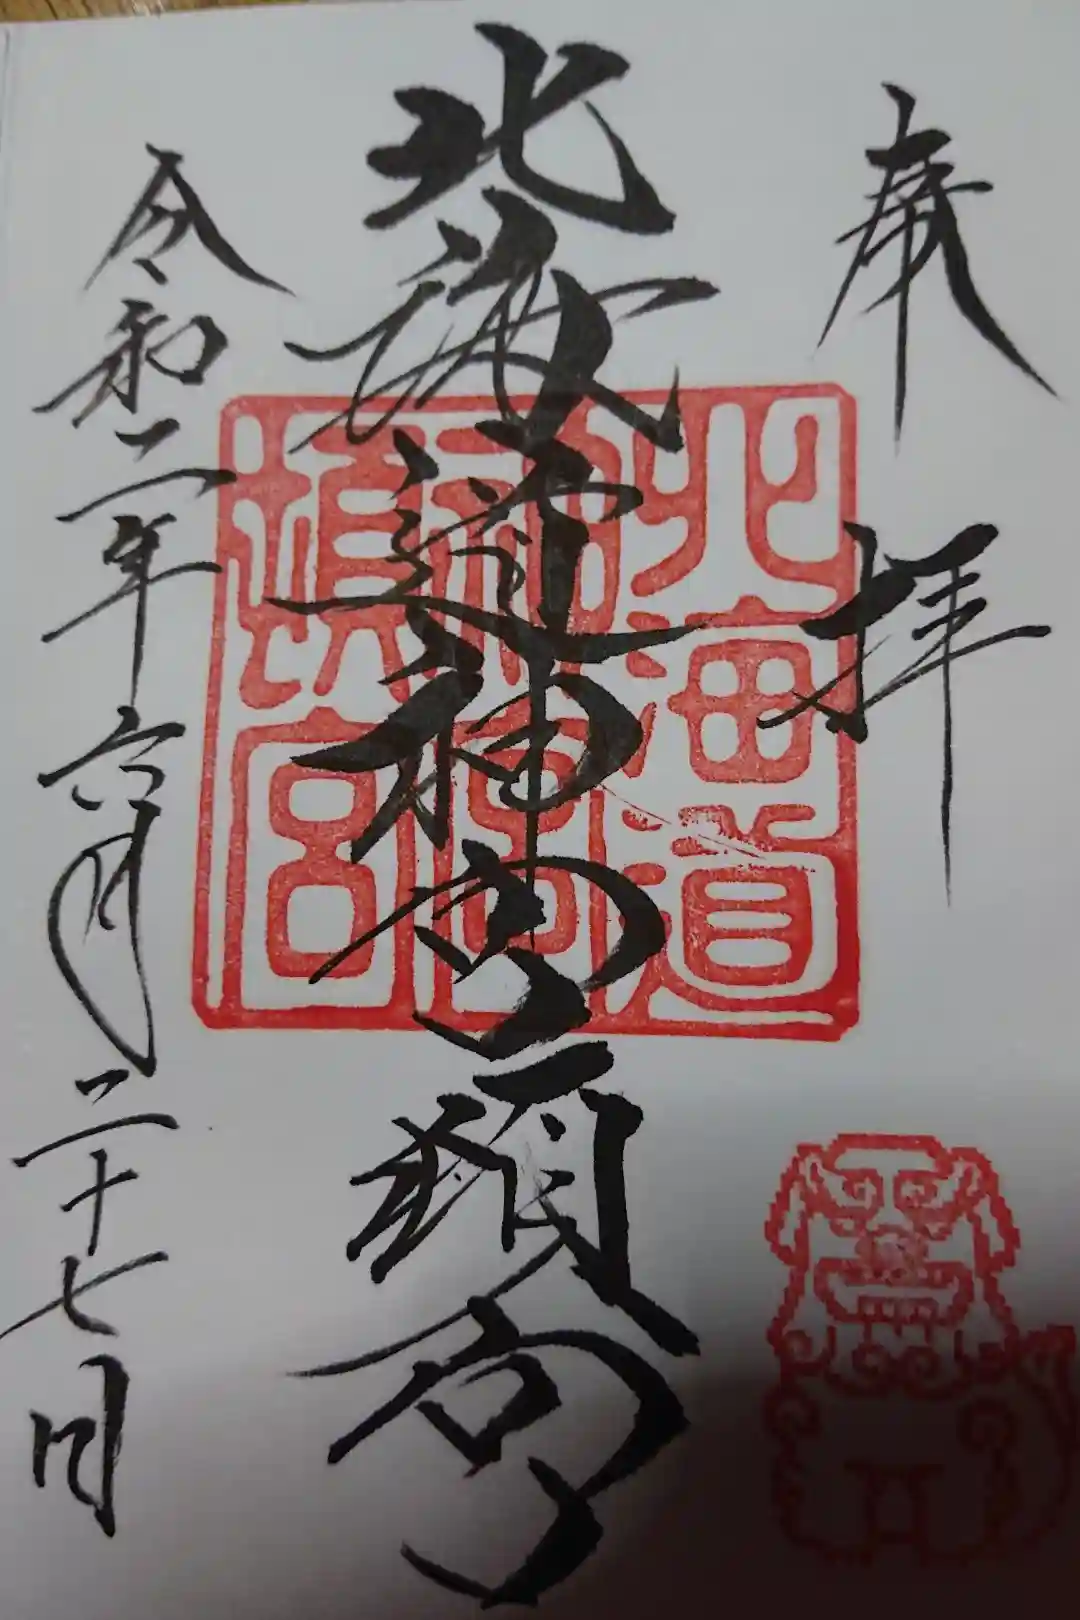 奉拝
北海道神宮頓宮
北海道
神宮
頓宮
令和二年六月二十七日